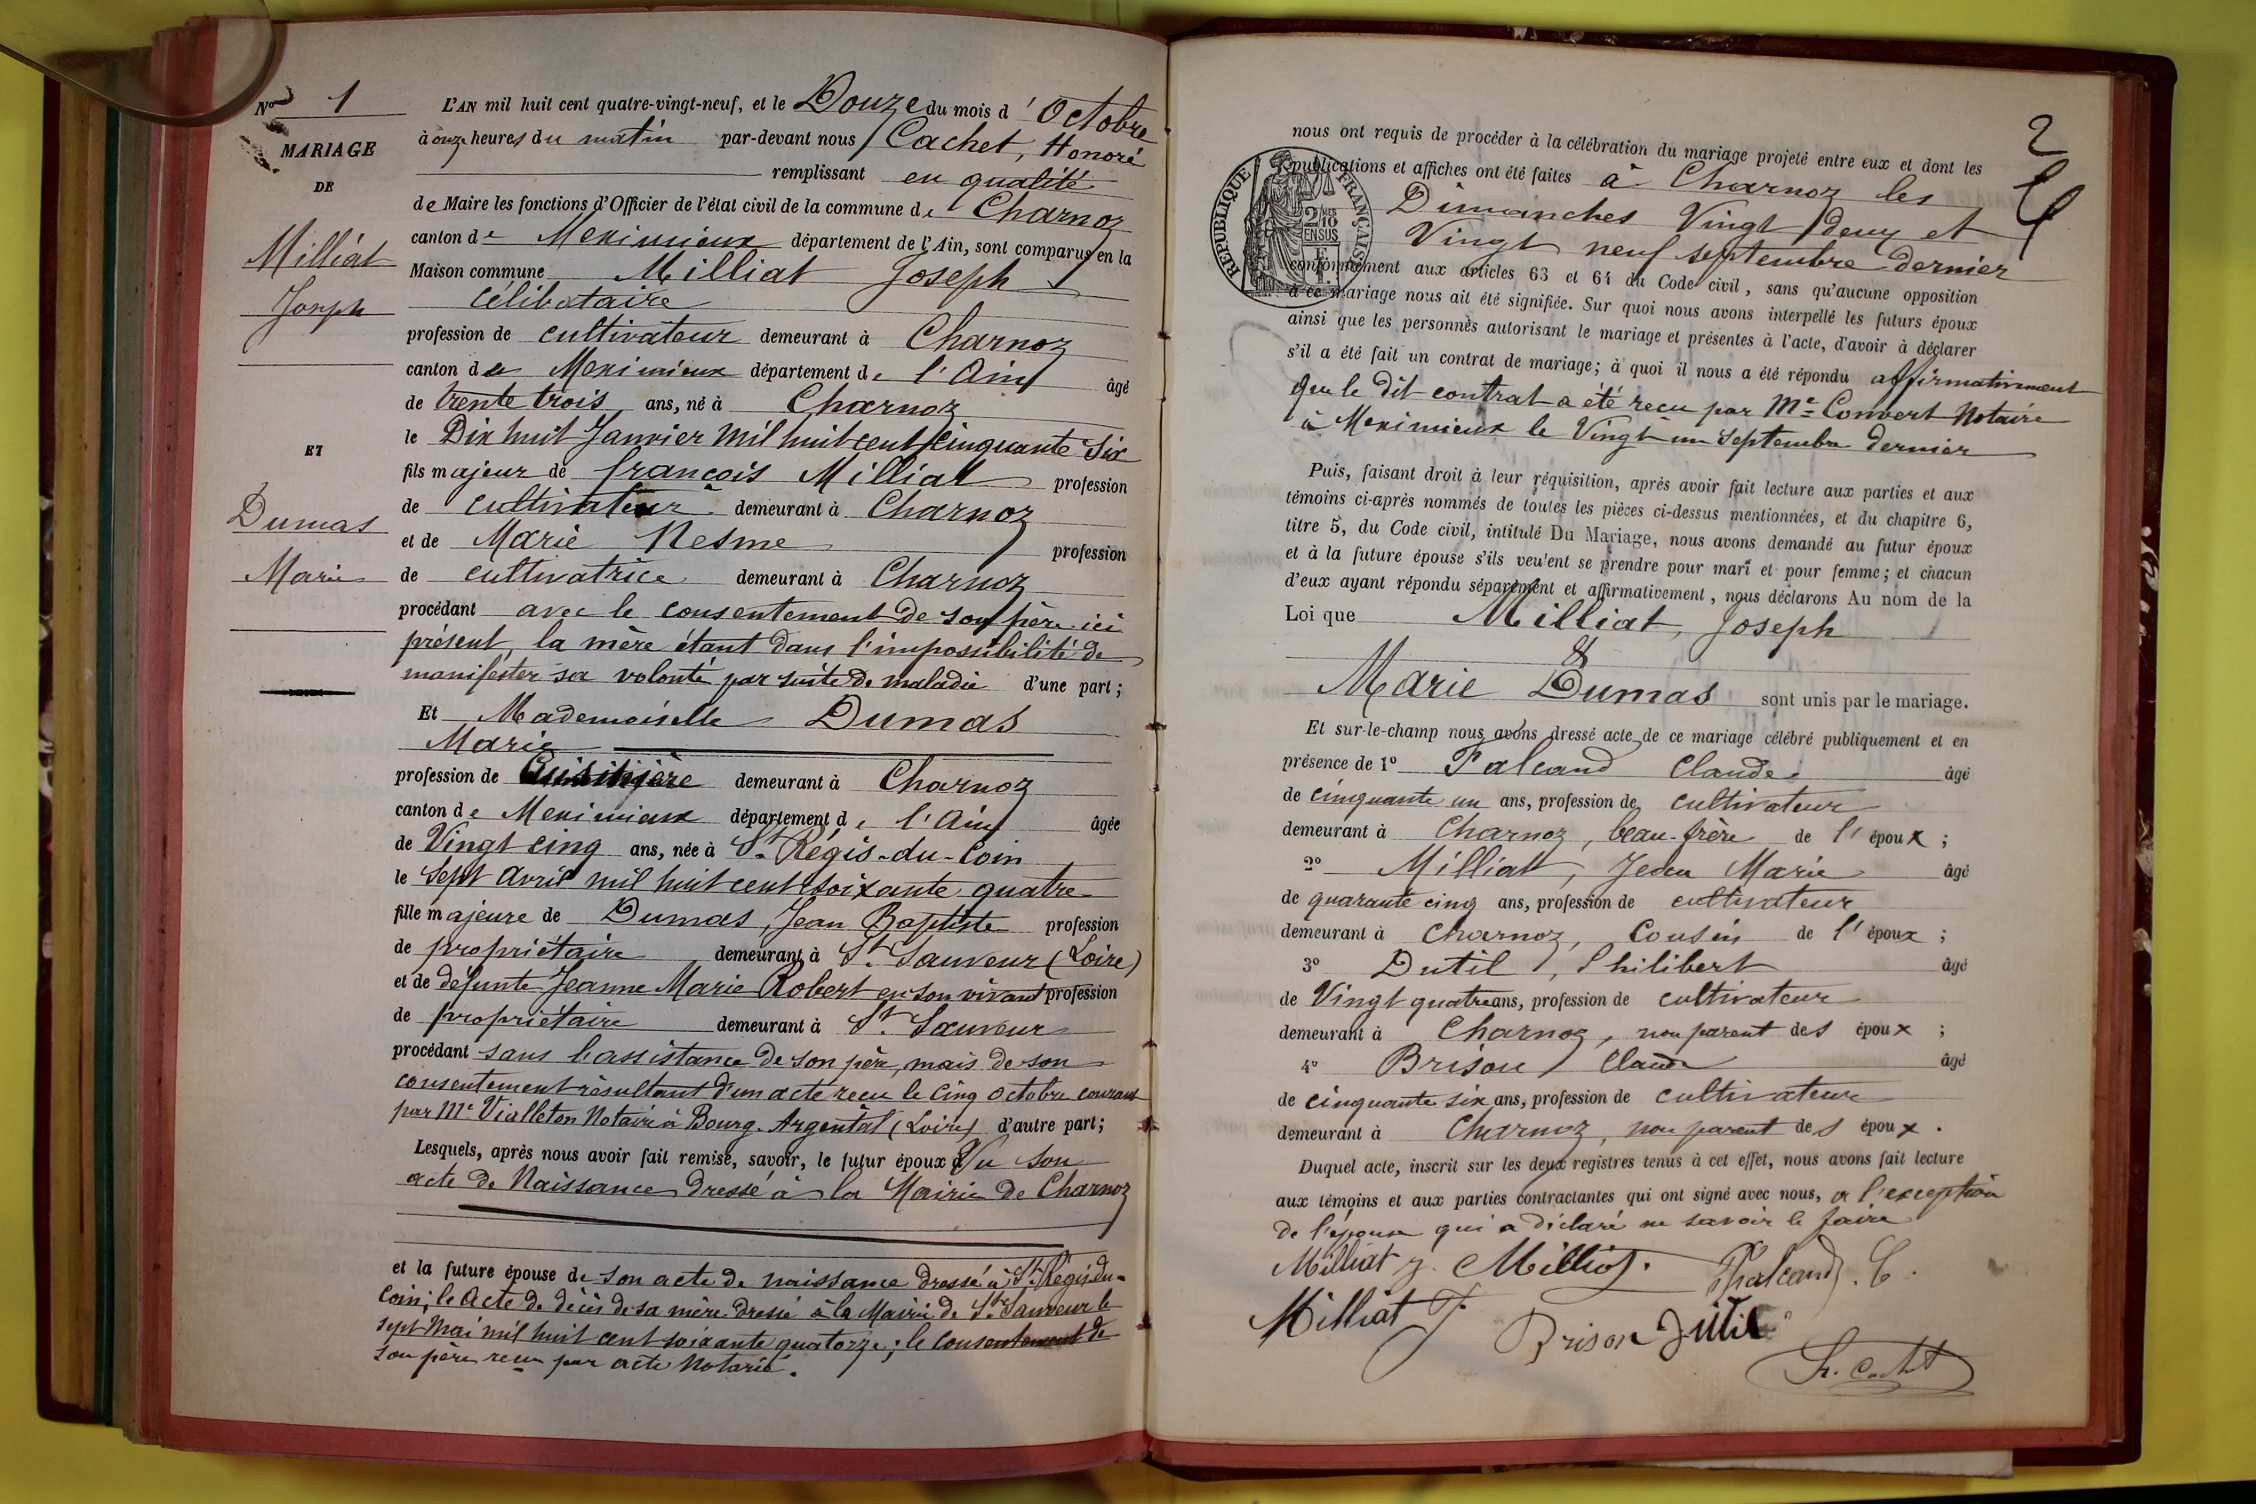 Nº 1
MARIAGE
DE
Milliat
Joseph
ET
Dumas
Marie
L'AN mil huit cent quatre-vingt-neuf, et le Douze du mois d'Octobre
à onze heures du matin par-devant nous Cachet, Honoré
remplissant en qualité
de Maire les fonctions d'Officier de l'état civil de la commune de Charnoz
canton de Meximieux département de l'Ain, sont comparus en la
Maison commune Milliat Joseph
célibataire
profession de cultivateur demeurant à Charnoz
canton de Meximieux département de l'Ain âgé
de trente trois ans, né à Charnoz
le Dix huit Janvier mil huit cent cinquante six
fils majeur de françois Milliat profession
de cultivateur demeurant à Charnoz
et de Marie Nesme profession
de cultivatrice demeurant à Charnoz
procédant avec le consentement de son père ici
présent, la mère étant dans l'impossibilité de
manifester sa volonté par suite de maladie d'une part;
Et Mademoiselle Dumas
Marie
profession de Cuisinière demeurant à Charnoz
canton de Meximieux département de l'Ain âgée
de Vingt cinq ans, née à St Régis-du-Coin
le sept avril mil huit cent soixante quatre
fille majeure de Dumas, Jean Baptiste profession
de propriétaire demeurant à St. Sauveur (Loire)
et de défunte Jeanne Marie Robert en son vivant profession
de propriétaire demeurant à St. Sauveur
procédant sans l'assistance de son père, mais de son
consentement résultant d'un acte recu le cinq octobre courant
par Me Vialleton Notaire à Bourg-Argental (Loire) d'autre part;
Lesquels, après nous avoir fait remise, savoir, le futur époux Vu son
acte de Naissance dressé à la Mairie de Charnoz
et la future épouse de son acte de naissance dressé à St Régis-du-
Coin; le acte de décès de sa mère dressé à la Mairie de St Sauveur le
sept mai mil huit cent soixante quatorze; le consentement de
son père recu par acte Notarié.
2
REPUBLIQUE FRANÇAISE
2/10 EN SUS
nous ont requis de procéder à la célébration du mariage projeté entre eux et dont les
publications et affiches ont été faites à Charnoz les
Dimanches Vingt deux et
Vingt neuf septembre dernier
conformément aux articles 63 et 64 du Code civil, sans qu'aucune opposition
à ce mariage nous ait été signifiée. Sur quoi nous avons interpellé les futurs époux
ainsi que les personnes autorisant le mariage et présentes à l'acte, d'avoir à déclarer
s'il a été fait un contrat de mariage; à quoi il nous a été répondu affirmativement
que le dit contrat a été recu par Me Convert Notaire
à Meximieux le Vingt un septembre dernier
Puis, faisant droit à leur réquisition, après avoir fait lecture aux parties et aux
témoins ci-après nommés de toutes les pièces ci-dessus mentionnées, et du chapitre 6,
titre 5, du Code civil, intitulé Du Mariage, nous avons demandé au futur époux
et à la future épouse s'ils veulent se prendre pour mari et pour femme; et chacun
d'eux ayant répondu séparément et affirmativement, nous déclarons Au nom de la
Loi que Milliat, Joseph
&
Marie Dumas sont unis par le mariage.
Et sur-le-champ nous avons dressé acte de ce mariage célébré publiquement et en
présence de 1º Falcand Claude âgé
de cinquante un ans, profession de cultivateur
demeurant à Charnoz, beau-frère de l'époux;
2º Milliat, Jean Marie âgé
de quarante cinq ans, profession de cultivateur
demeurant à Charnoz, Cousin de l'époux;
3º Dutil, Philibert âgé
de Vingt quatre ans, profession de cultivateur
demeurant à Charnoz, non parent des époux;
4º Brison Claude âgé
de cinquante six ans, profession de cultivateur
demeurant à Charnoz, non parent des époux.
Duquel acte, inscrit sur les deux registres tenus à cet effet, nous avons fait lecture
aux témoins et aux parties contractantes qui ont signé avec nous, à l'exception
de l'épouse qui a déclaré ne savoir le faire
Milliat J. Milliat. Phalcand. C.
Milliat J. Brison Dutil
h. Cachet